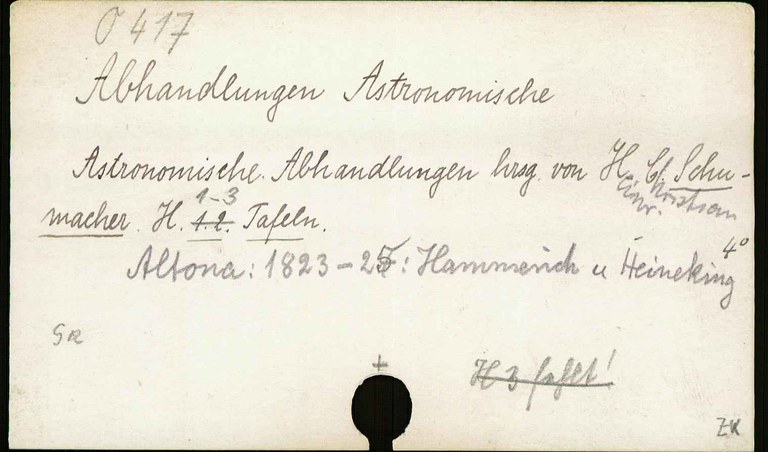 O 417
Abhandlungen Astronomische
Astronomische Abhandlungen hrsg. von H. C. Schu-
macher. H. 1.2. Tafeln.
1-3
Altona: 1823-25: Hammerich u Heineking
4°
H 3 fehlt!
+
ZK